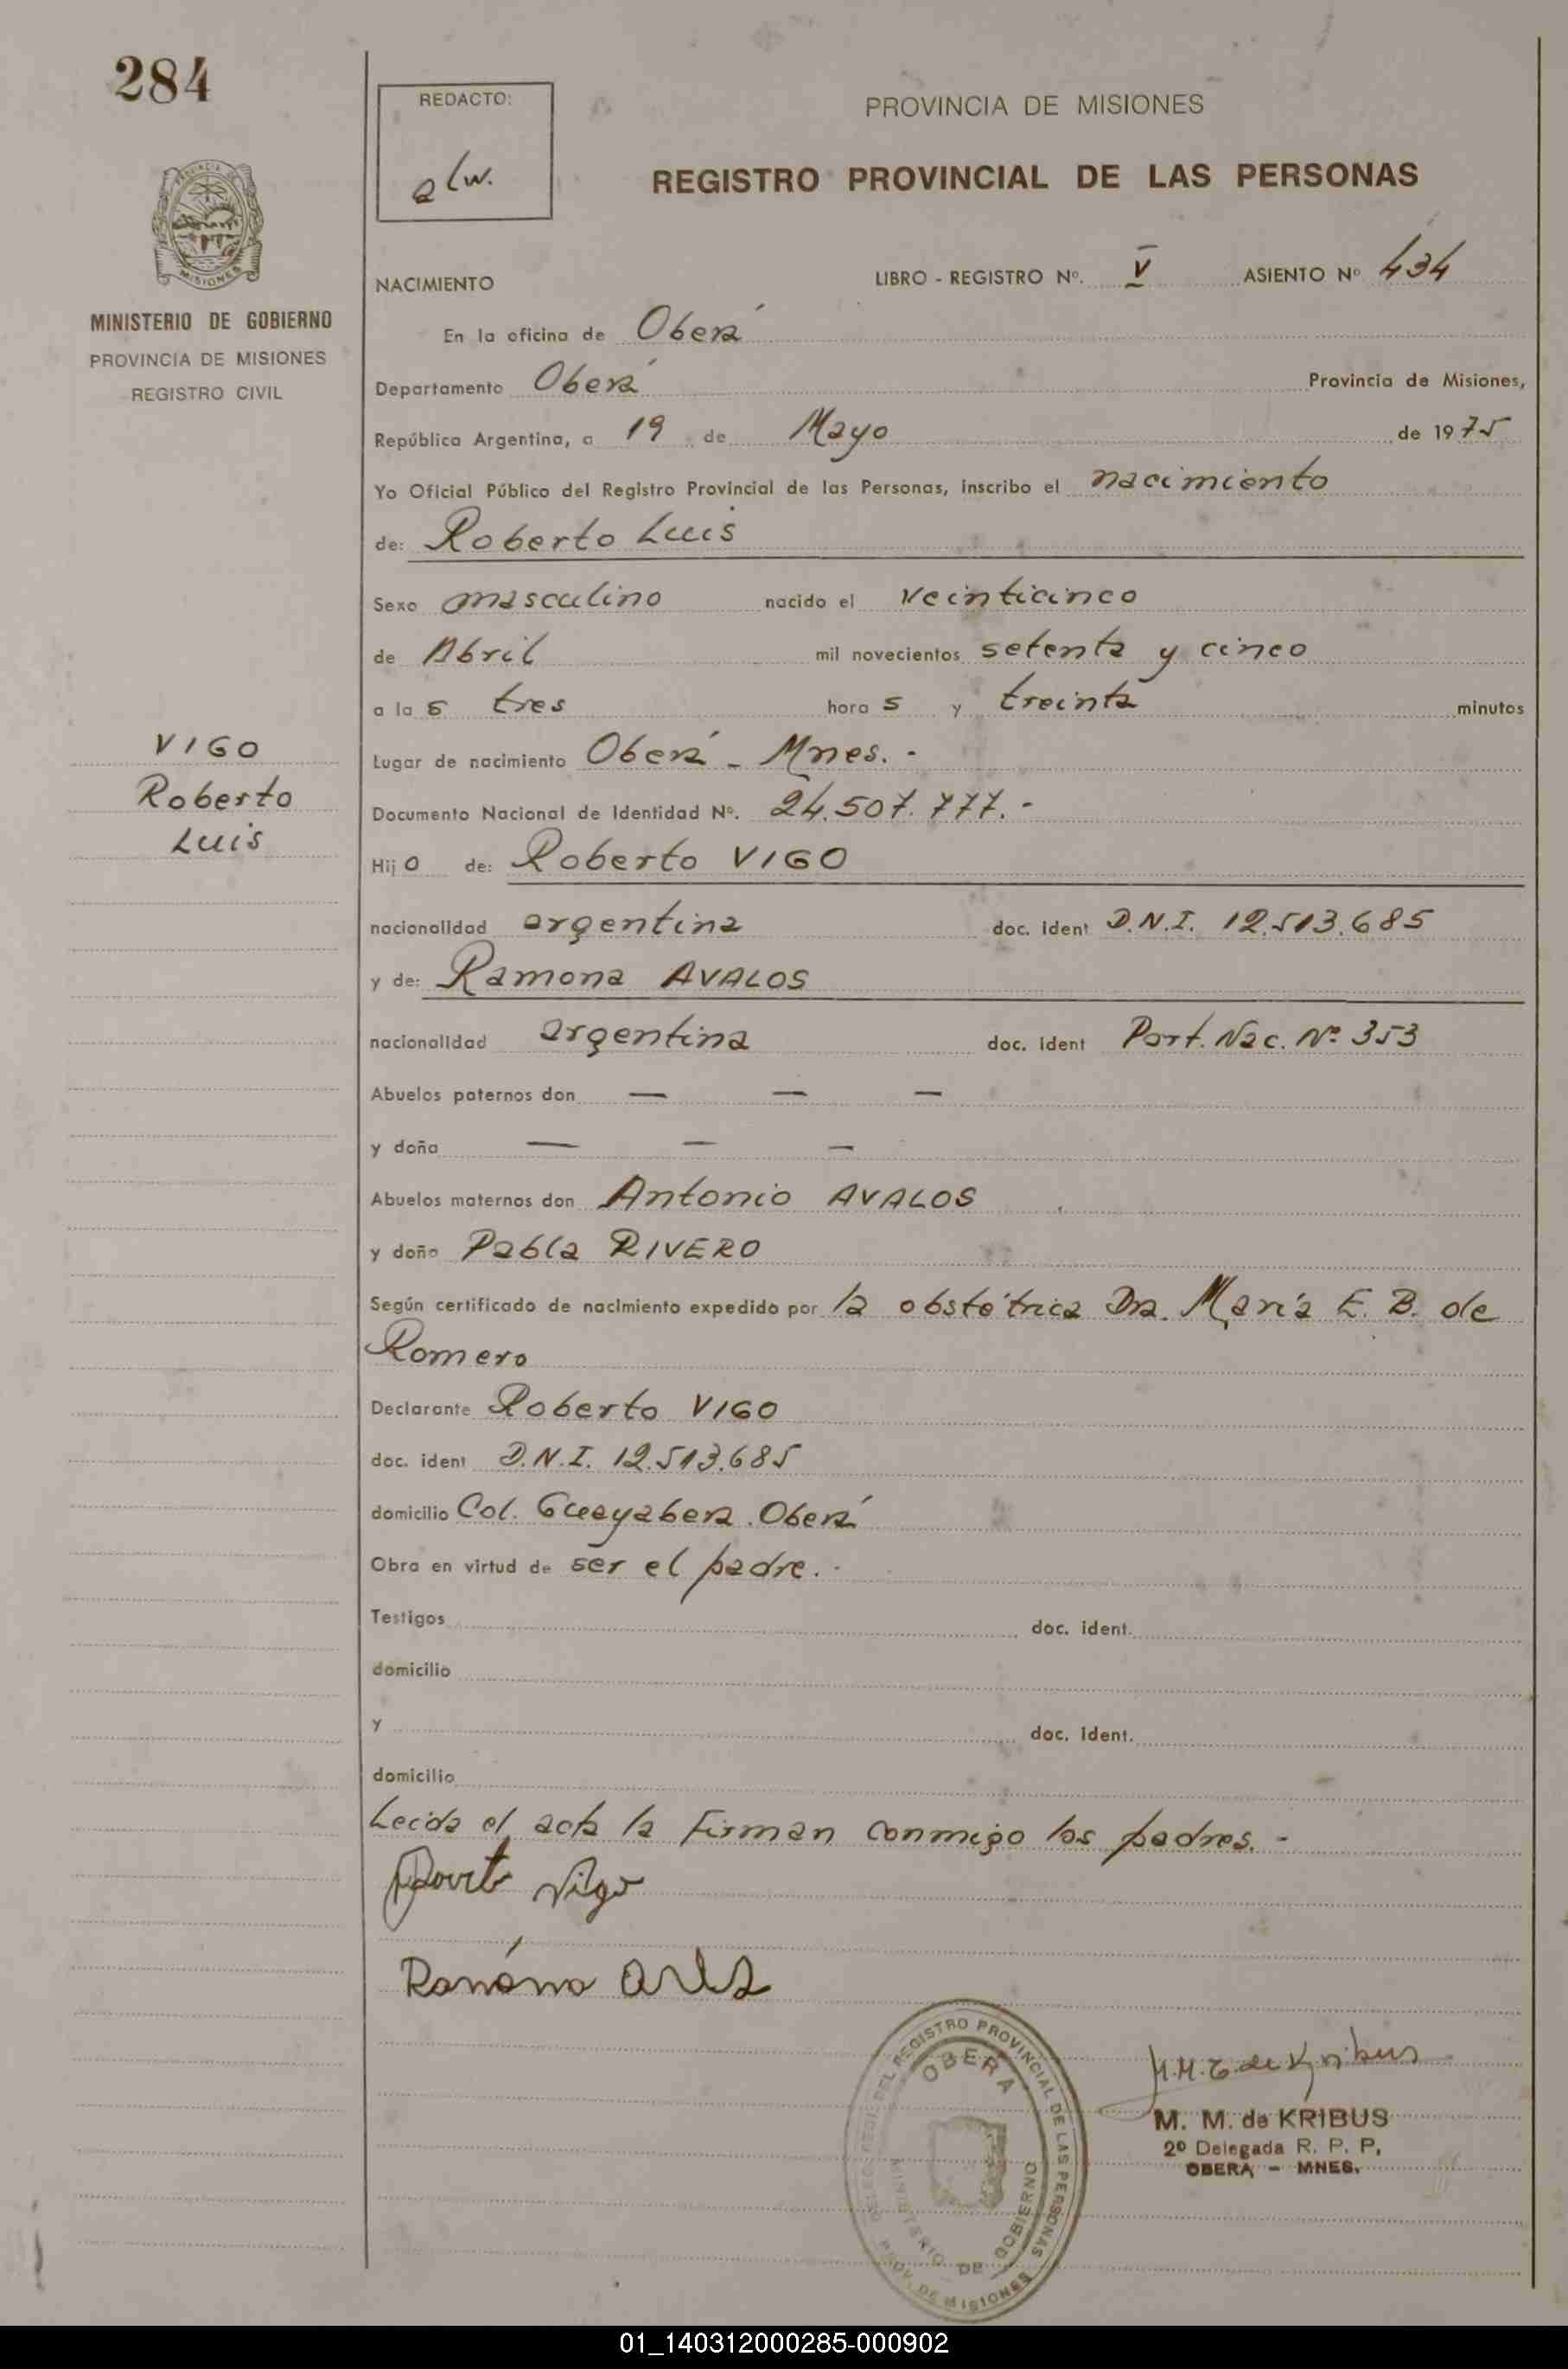 284
REDACTO:
alw.
PROVINCIA DE MISIONES
REGISTRO PROVINCIAL DE LAS PERSONAS
PROVINCIA DE
MISIONES
MINISTERIO DE GOBIERNO
PROVINCIA DE MISIONES
REGISTRO CIVIL
NACIMIENTO LIBRO - REGISTRO Nº. V ASIENTO Nº 434
En la oficina de Oberá
Departamento Oberá Provincia de Misiones,
República Argentina, a 19 de Mayo de 1975
Yo Oficial Público del Registro Provincial de las Personas, inscribo el nacimiento
de: Roberto Luis
Sexo masculino nacido el veinticinco
de Abril mil novecientos setenta y cinco
a las tres horas y treinta minutos
VIGO
Roberto
Luis
Lugar de nacimiento Oberá - Mnes. -
Documento Nacional de Identidad Nº. 24.507.777. -
Hijo de: Roberto VIGO
nacionalidad argentina doc. ident D.N.I. 12.513.685
y de: Ramona AVALOS
nacionalidad argentina doc. ident Part. Nac. Nº 353
Abuelos paternos don — — —
y doña — — —
Abuelos maternos don Antonio AVALOS
y doña Pabla RIVERO
Según certificado de nacimiento expedido por la obstétrica Dra. María E. B. de
Romero
Declarante Roberto VIGO
doc. ident D.N.I. 12.513.685
domicilio Col. Guayabera. Oberá
Obra en virtud de ser el padre. -
Testigos doc. ident.
domicilio
y doc. ident.
domicilio
Leída el acta la firman conmigo los padres. -
Vigo
Ramona
DEL REGISTRO PROVINCIAL DE LAS PERSONAS
OBERA
MINISTERIO DE GOBIERNO
PROV. DE MISIONES
M.M. de Kribus
M. M. de KRIBUS
2º Delegada R. P. P.
OBERA - MNES.
01_140312000285-000902